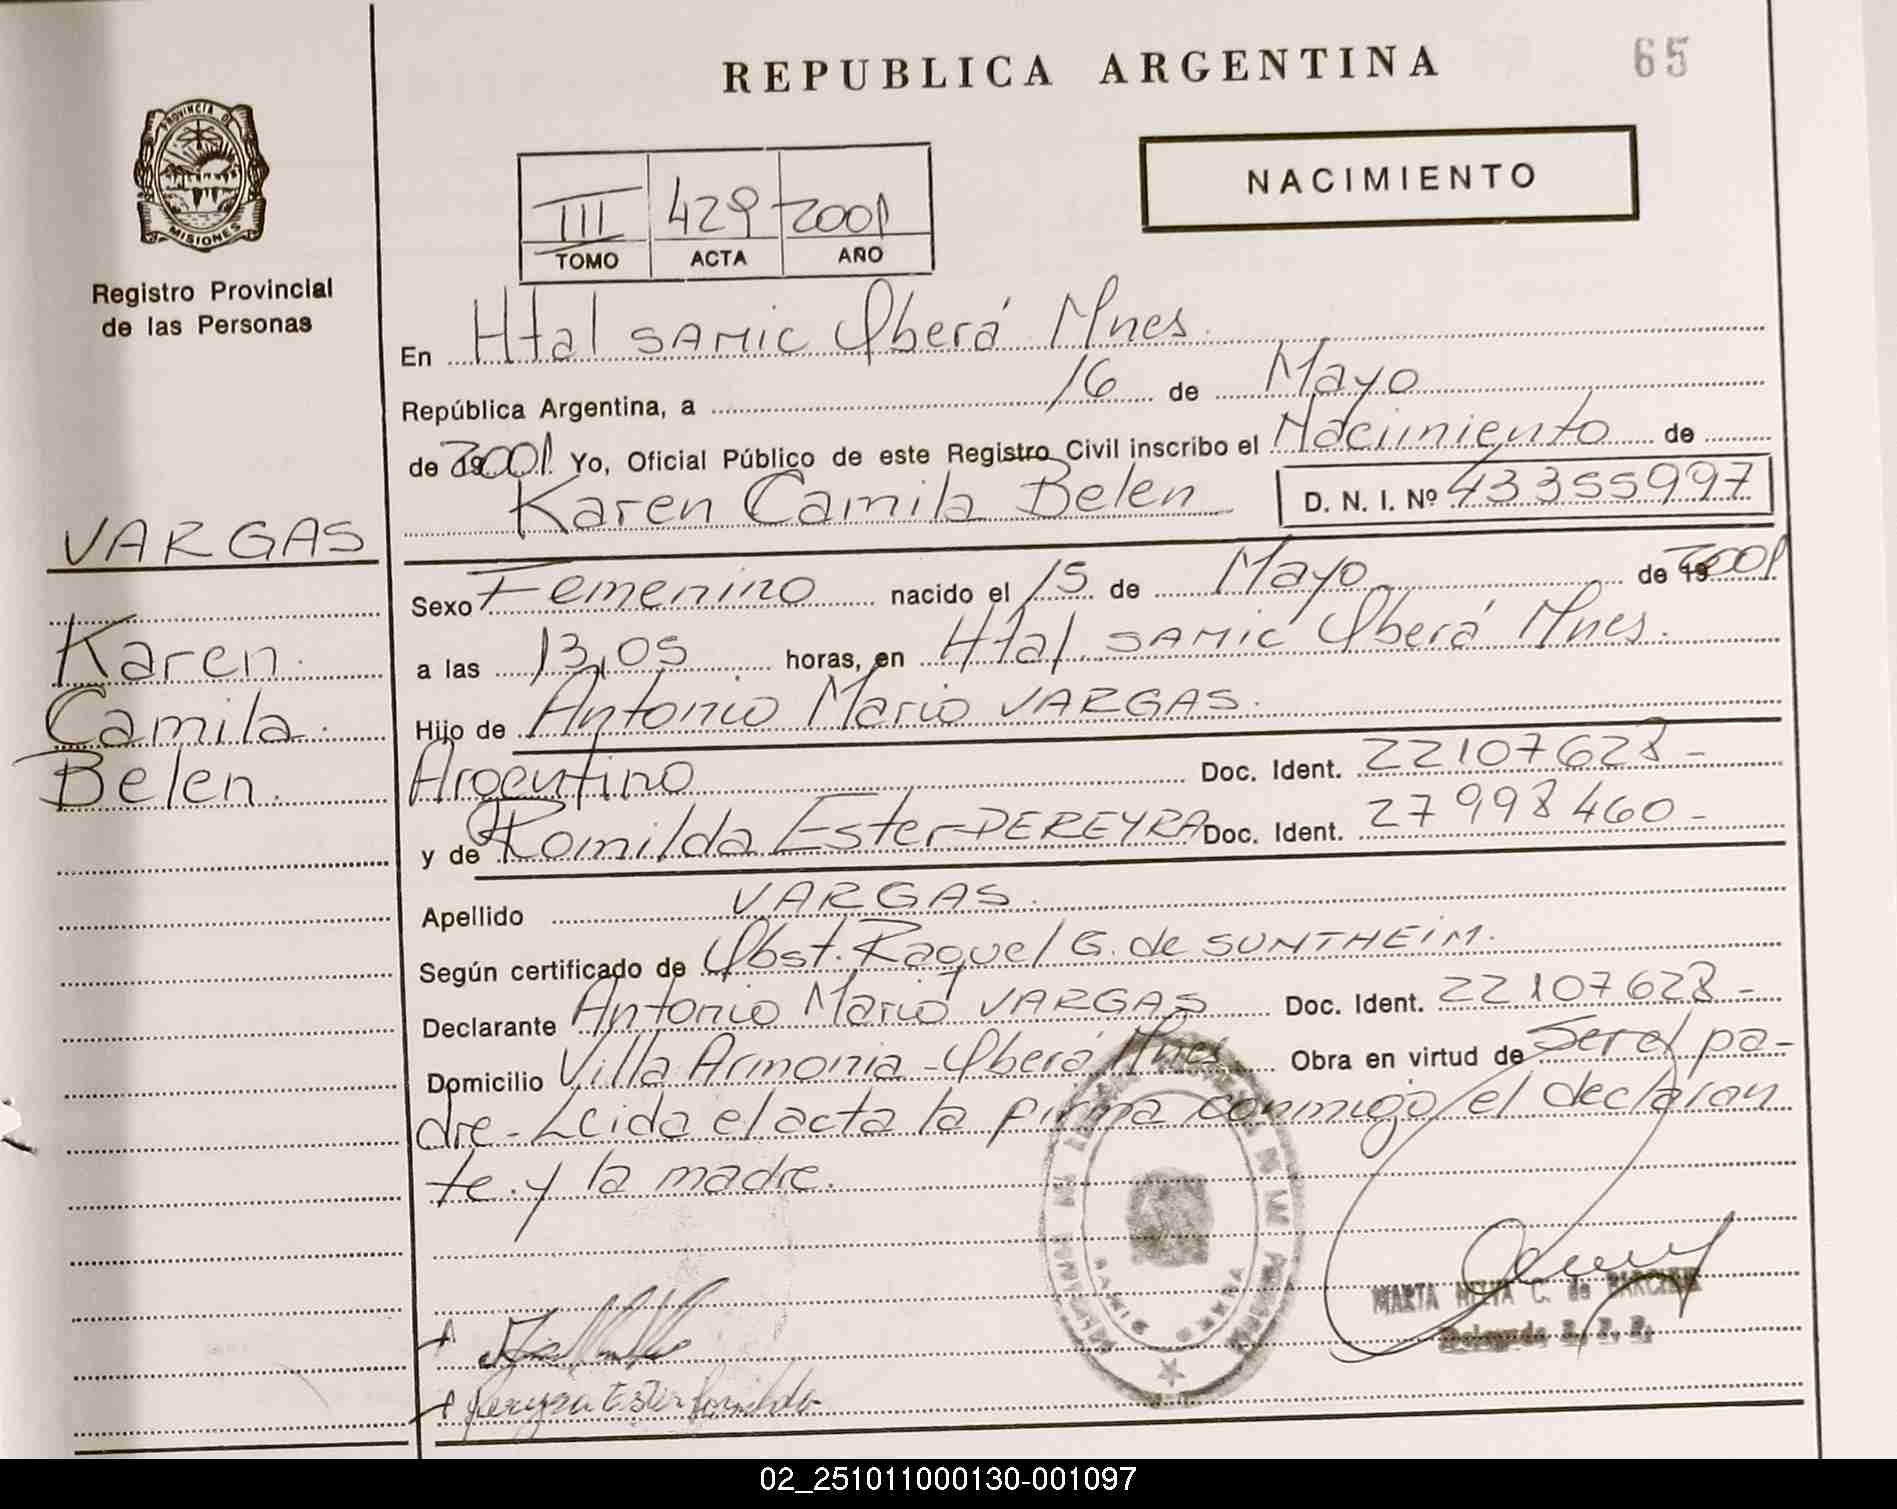 REPUBLICA ARGENTINA
65
PROVINCIA DE
MISIONES
Registro Provincial
de las Personas
NACIMIENTO
III 429 2001
TOMO ACTA AÑO
En Htal SAMIC Oberá Mnes.
República Argentina, a 16 de Mayo
de 2001 Yo, Oficial Público de este Registro Civil inscribo el Nacimiento de
Karen Camila Belen D. N. I. Nº 43355997
VARGAS
Karen
Camila
Belen
Sexo Femenino nacido el 15 de Mayo de 2001
a las 13,05 horas, en Htal. SAMIC Oberá Mnes.
Hijo de Antonio Mario VARGAS.
Argentino Doc. Ident. 22107628-
y de Romilda Ester PEREYRA Doc. Ident. 27998460-
Apellido VARGAS.
Según certificado de Obst. Raquel G. de SUNTHEIM.
Declarante Antonio Mario VARGAS Doc. Ident. 22107628-
Domicilio Villa Armonia - Oberá Mnes Obra en virtud de Ser el pa-
dre - Leida el acta la firma conmigo el declaran
te y la madre.
MARTA C. de
Pereyra Ester Romilda
02_251011000130-001097